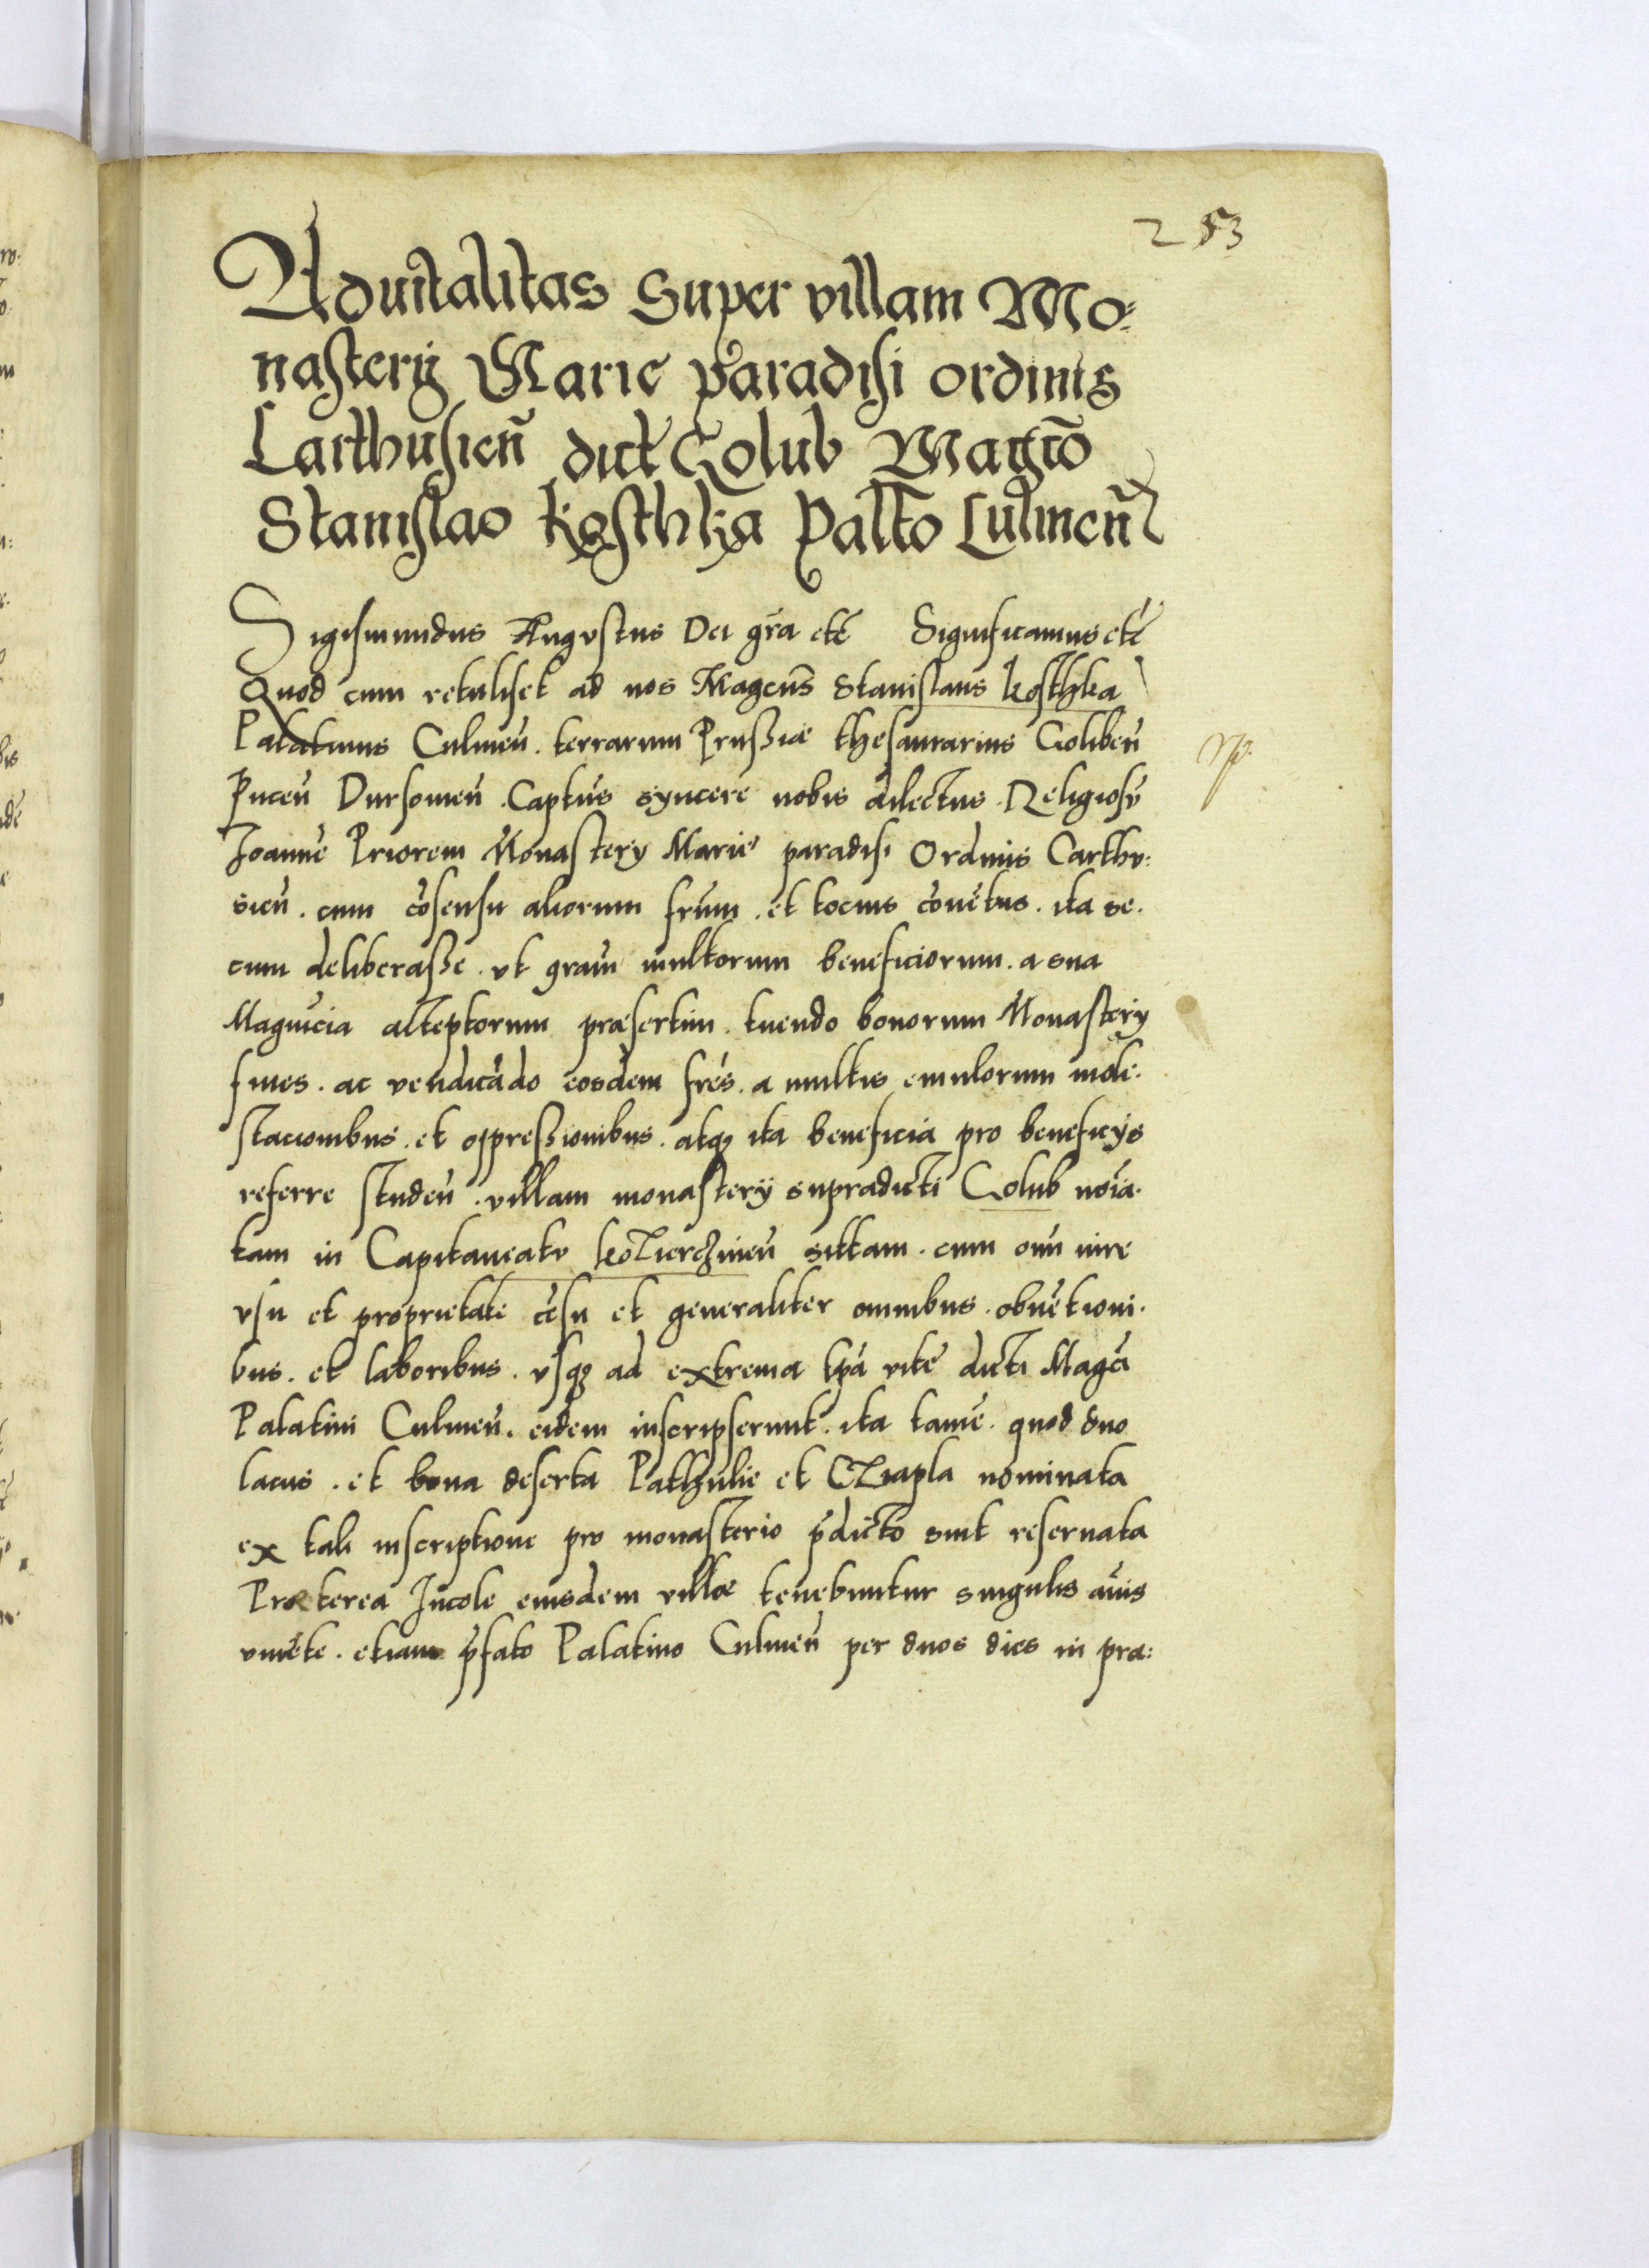 253
Aduitalitas Super villam Mo:
nasterij Marie paradisi ordinis
Carthusieñ dict Golub Magco
Stanislao kosthka Palto Culmeñ
Sigismundus Augustus Dei gra etc Significamus etc
Quod cum retuliset ad nos Magcus Stanislaus kosthka
Palatinus Culmeñ . terrarum Prussiae thesaurarius Goliben
Puceñ Dirsouieñ . Captus syncere nobis dilectus . Religiosu
Joanne Priorem Monastery Marie paradisi Ordinis Carthu:
sieñ . cum cosensu aliorum frum . et tocius conuetus . ita se.
cum deliberasse . vt gram multorum beneficiorum . a sua
Magnicia acceptorum praesertim . tuendo bonorum Monastery
fines . ac vendicado eosdem fres . a multis emulorum mole.
stacionibus . et oppressionibus . atq ita beneficia pro beneficijs
referre studeñ . villam monasterij supradicti Golub noia.
tam in Capitaneatu kosczierzineñ sittam . cum oim iure
vsu et proprietate cesu et generaliter omnibus . obuetioni.
bus . et laboribus . vsq ad extrema tpa vite dicti Magci
Palatini Culmeñ . eidem inscripserunt . ita tame . quod duo
lacus . et bona deserta Pathulie et Czapla nominata
ex tali inscriptione pro monasterio pdicto sint reseruata
Praeterea Incole eiusdem villae tenebuntur singulis anis
viuete . etiam pfato Palatino Culmeñ per duos dies in pra: